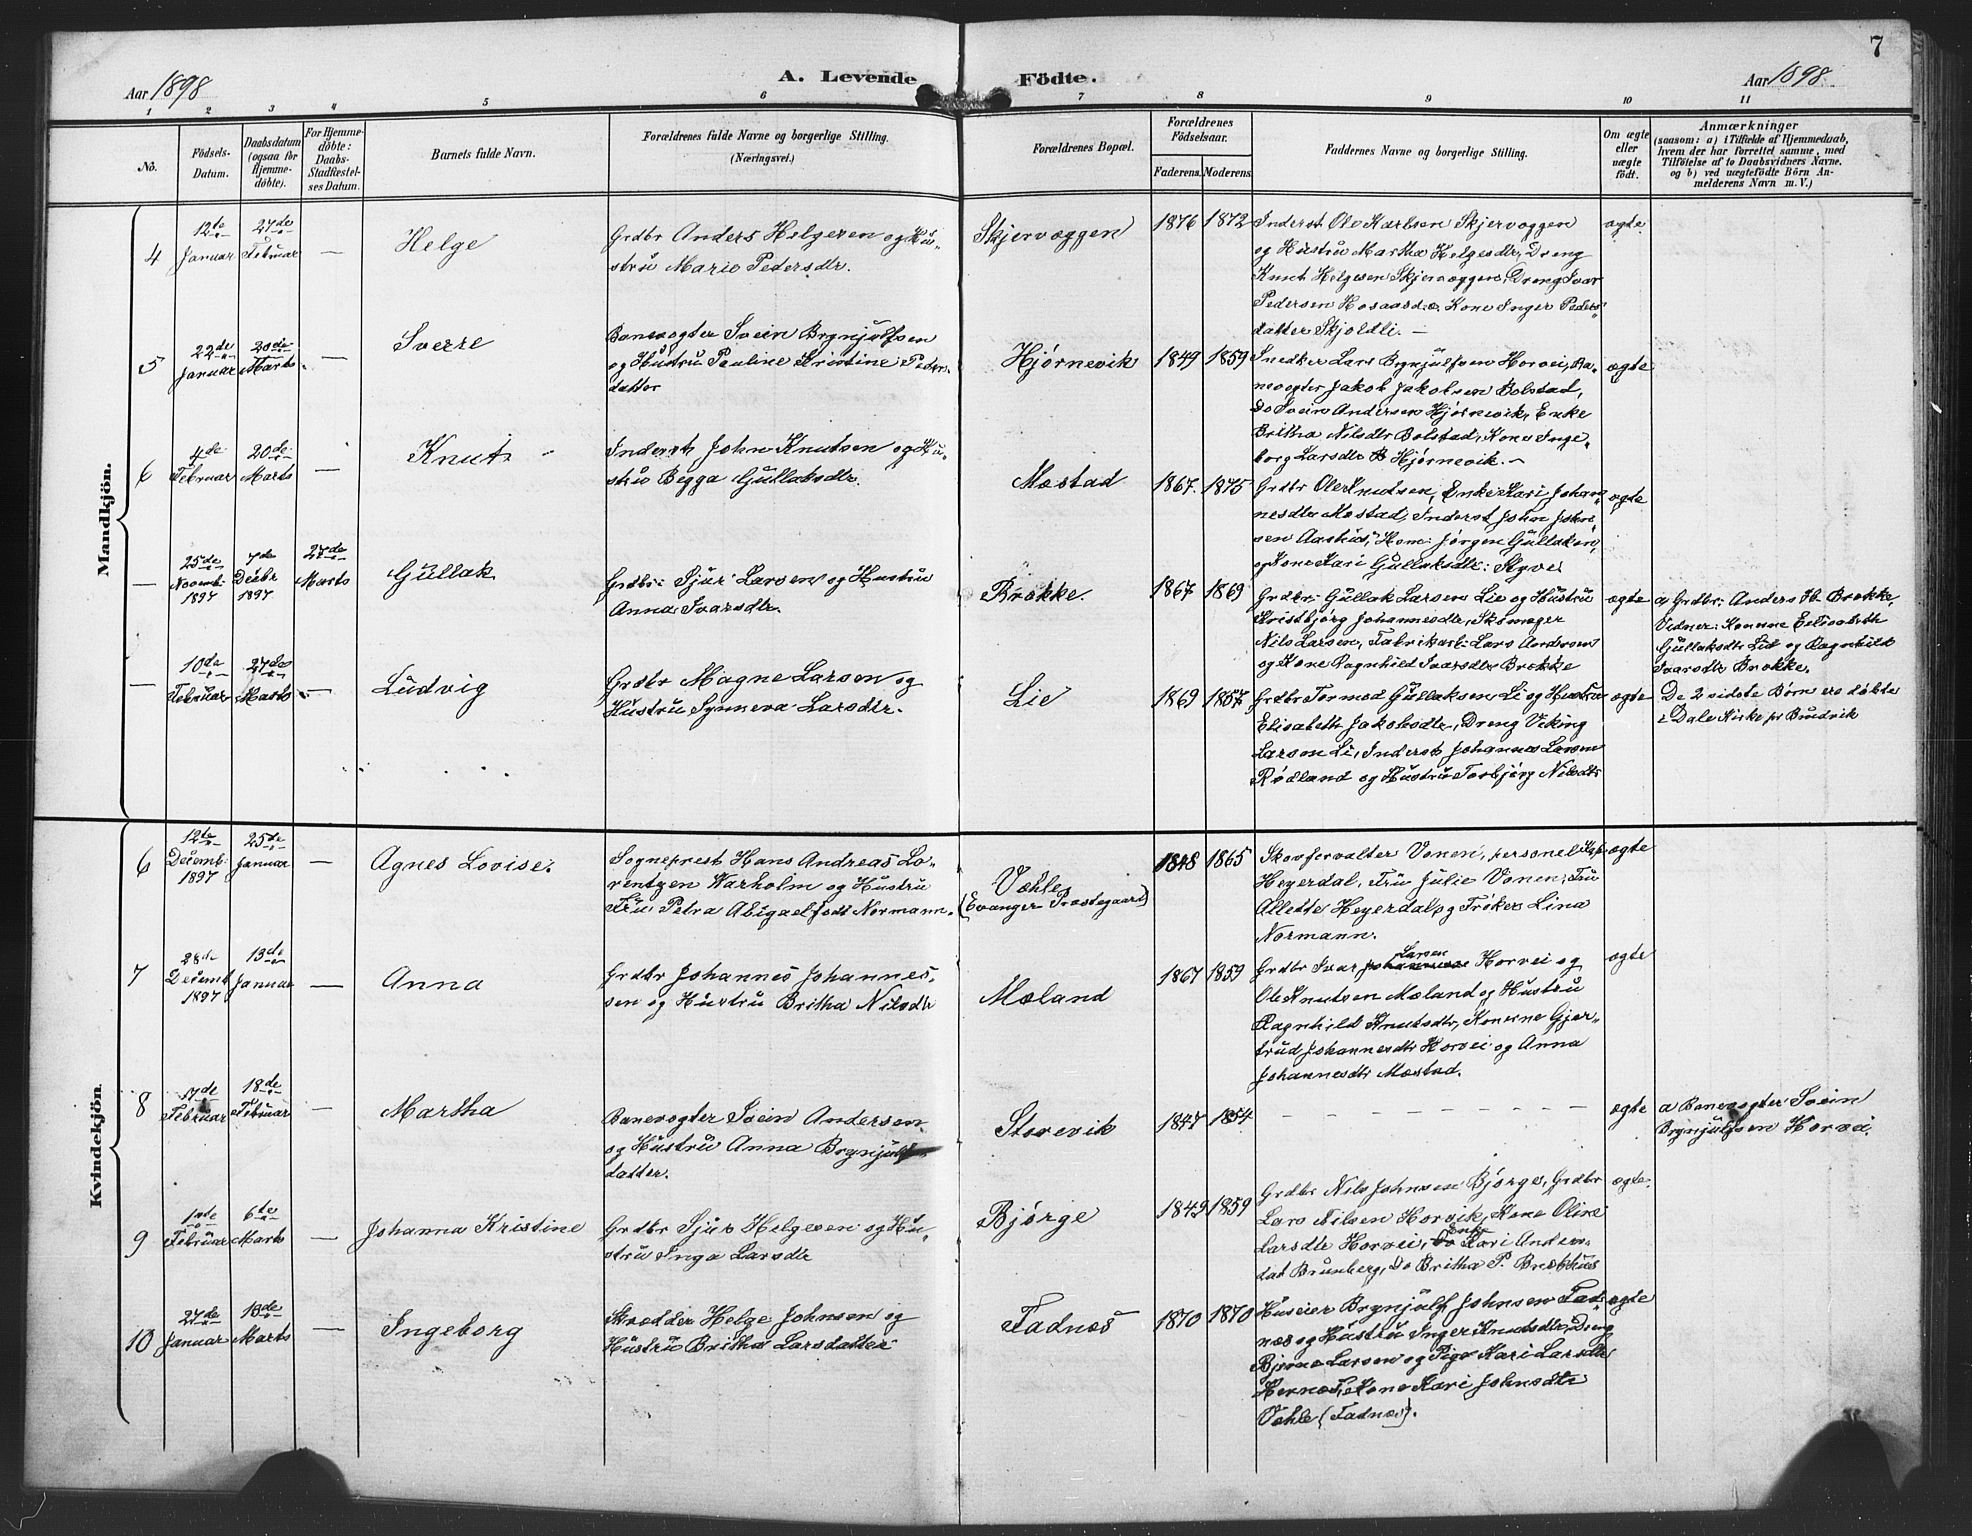 7
Aar 1898
A. Levende Födte.
Aar 1898
1 2 3 4 5 6 7 8 9 10 11
No.
Födsels-
Datum.
Daabsdatum
(ogsaa för
Hjemme-
döbte).
For Hjemme-
döbte:
Daabs-
Stadfæstel-
ses Datum.
Barnets fulde Navn.
Forældrenes fulde Navne og borgerlige Stilling.
(Næringsvei.)
Forældrenes Bopæl.
Forældrenes
Födselsaar.
Faderens. Moderens
Faddernes Navne og borgerlige Stilling.
Om ægte
eller
uægte
födt.
Anmærkninger
(saasom: a) i Tilfælde af Hjemmedaab,
hvem der har forrettet samme, med
Tilföielse af to Daabsvidners Navne.
og b) ved uægtefödte Börn An-
melderens Navn m. V.)
Mandkjön.
4
12te
Januar
27de
Februar
—
Helge
Grdbr Anders Helgesen og Hu-
stru Marie Pedersdtr.
Skjervæggen
1876 1872
Inderst Ole Karlsen Skjervæggen
og Hustru Martha Helgesdtr, Dreng
Knut Helgesen Skjervæggen, Dreng Ivar
Pedersen Hosaas, Kone Inger Peders-
datter Skjoldli. —
ægte
5
22de
Januar
20de
Marts
—
Sverre
Banevogter Svein Brynjulfsen
og Hustru Pauline Kristine Peders-
datter
Hjørnevik
1849 1859
Snedker Lars Brynjulfsen Horvei, Ba-
nevogter Jakob Jakobsen Bolstad,
Do Svein Andersen Hjørnevik, Enke
Britha Nilsdtr Bolstad, Kone Inge-
borg Larsdtr Hjørnevik. —
ægte
6
4de
Februar
20de
Marts
—
Knut
Inderst John Knutsen og Hu-
stru Begga Gullaksdtr.
Mæstad
1867. 1875
Grdbr Ole Knutsen, Enke Kari Johan-
nesdtr Mæstad, Inderst John John-
sen Aashus, Hem. Jørgen Gullaksen,
og Kone Kari Gullaksdtr. Styve
ægte
—
25de
Novemb.
1897
7de
Decbr
1897
27de
Marts
Gullak
Grdbr. Sjur Larsen og Hustru
Anna Ivarsdtr.
Brække.
1867 1869
Grdbr. Gullak Larsen Lie og Hustru
Kristbjørg Johannesdtr, Skomager
Nils Larsen, Fabrikarb. Lars Andersen
og Kone Ragnhild Ivarsdtr Brække
ægte
a Grdbr. Anders Brække,
Vidner: Konerne Elisabeth
Gullaksdtr Lid og Ragnhild
Ivarsdtr Brække.
—
10de
Februar
27de
Marts
—
Ludvig
Grdbr Magne Larsen og
Hustru Synneva Larsdtr.
Lie
1869 1857
Grdbr Tormod Gullaksen Li og Hustru
Elisabeth Jakobsdtr, Dreng Viking
Larsen Li, Inderst Johannes Larsen
Rødland og Hustru Torbjørg Nilsdtr
ægte
De 2 sidste Børn ere døbte
i Dale Kirke pr Bruvik
Kvindekjön
6
12te
Decemb.
1897
25de
Januar
—
Agnes Lovise.
Sogneprest Hans Andreas Lo-
rentzen Warholm og Hustru
Fru Petra Abigael født Normann.
Væhle
(Evanger Præstegaard)
1848 1865
Skovforvalter Vonen, personel Kap.
Heyerdal, Fru Julie Vonen, Fru
Allette Heyerdal og Frøken Lina
Normann.
ægte
7
28de
Decemb
1897
13de
Januar
—
Anna
Grdbr Johannes Johannes-
sen og Hustru Britha Nilsdtr
Mæland
1867 1859
Grdbr Ivar Larsen Horvei og
Ole Knutsen Mæland og Hustru
Ragnhild Knutsdtr, Konerne Gjer-
trud Johannesdtr Horvei og Anna
Johannesdtr Mæstad.
ægte
8
17de
Februar
18de
Februar
—
Martha
Banevogter Svein Andersen
og Hustru Anna Brynjulfs-
datter.
Storevik
1847 1854
— — — — — — — —
ægte
a Banevogter Svein
Brynjulfsen Horvei.
9
1ste
Februar
6te
Marts
—
Johanna Kristine
Grdbr Sjur Helgesen og Hu-
stru Inga Larsdtr
Bjørge
1849 1859
Grdbr Nils Johnsen Bjørge, Grdbr
Lars Nilsen Horvik, Kone Oline
Larsdtr Horvei, Enke Kari Anders-
dat Brunberg, Do Britha P. Brækhus
ægte.
10
27de
Januar
13de
Marts
—
Ingeborg
Skrædder Helge Johnsen og
Hustru Britha Larsdatter
Fadnæs
1870 1870
Huseier Brynjulf Johnsen Fad-
næs og Hustru Inger Knutsdtr, Dreng
Bjarne Larsen og Pige Kari Larsdtr
Hernæs, Kone Kari Johnsdtr
Væhle (Fadnæs).
ægte